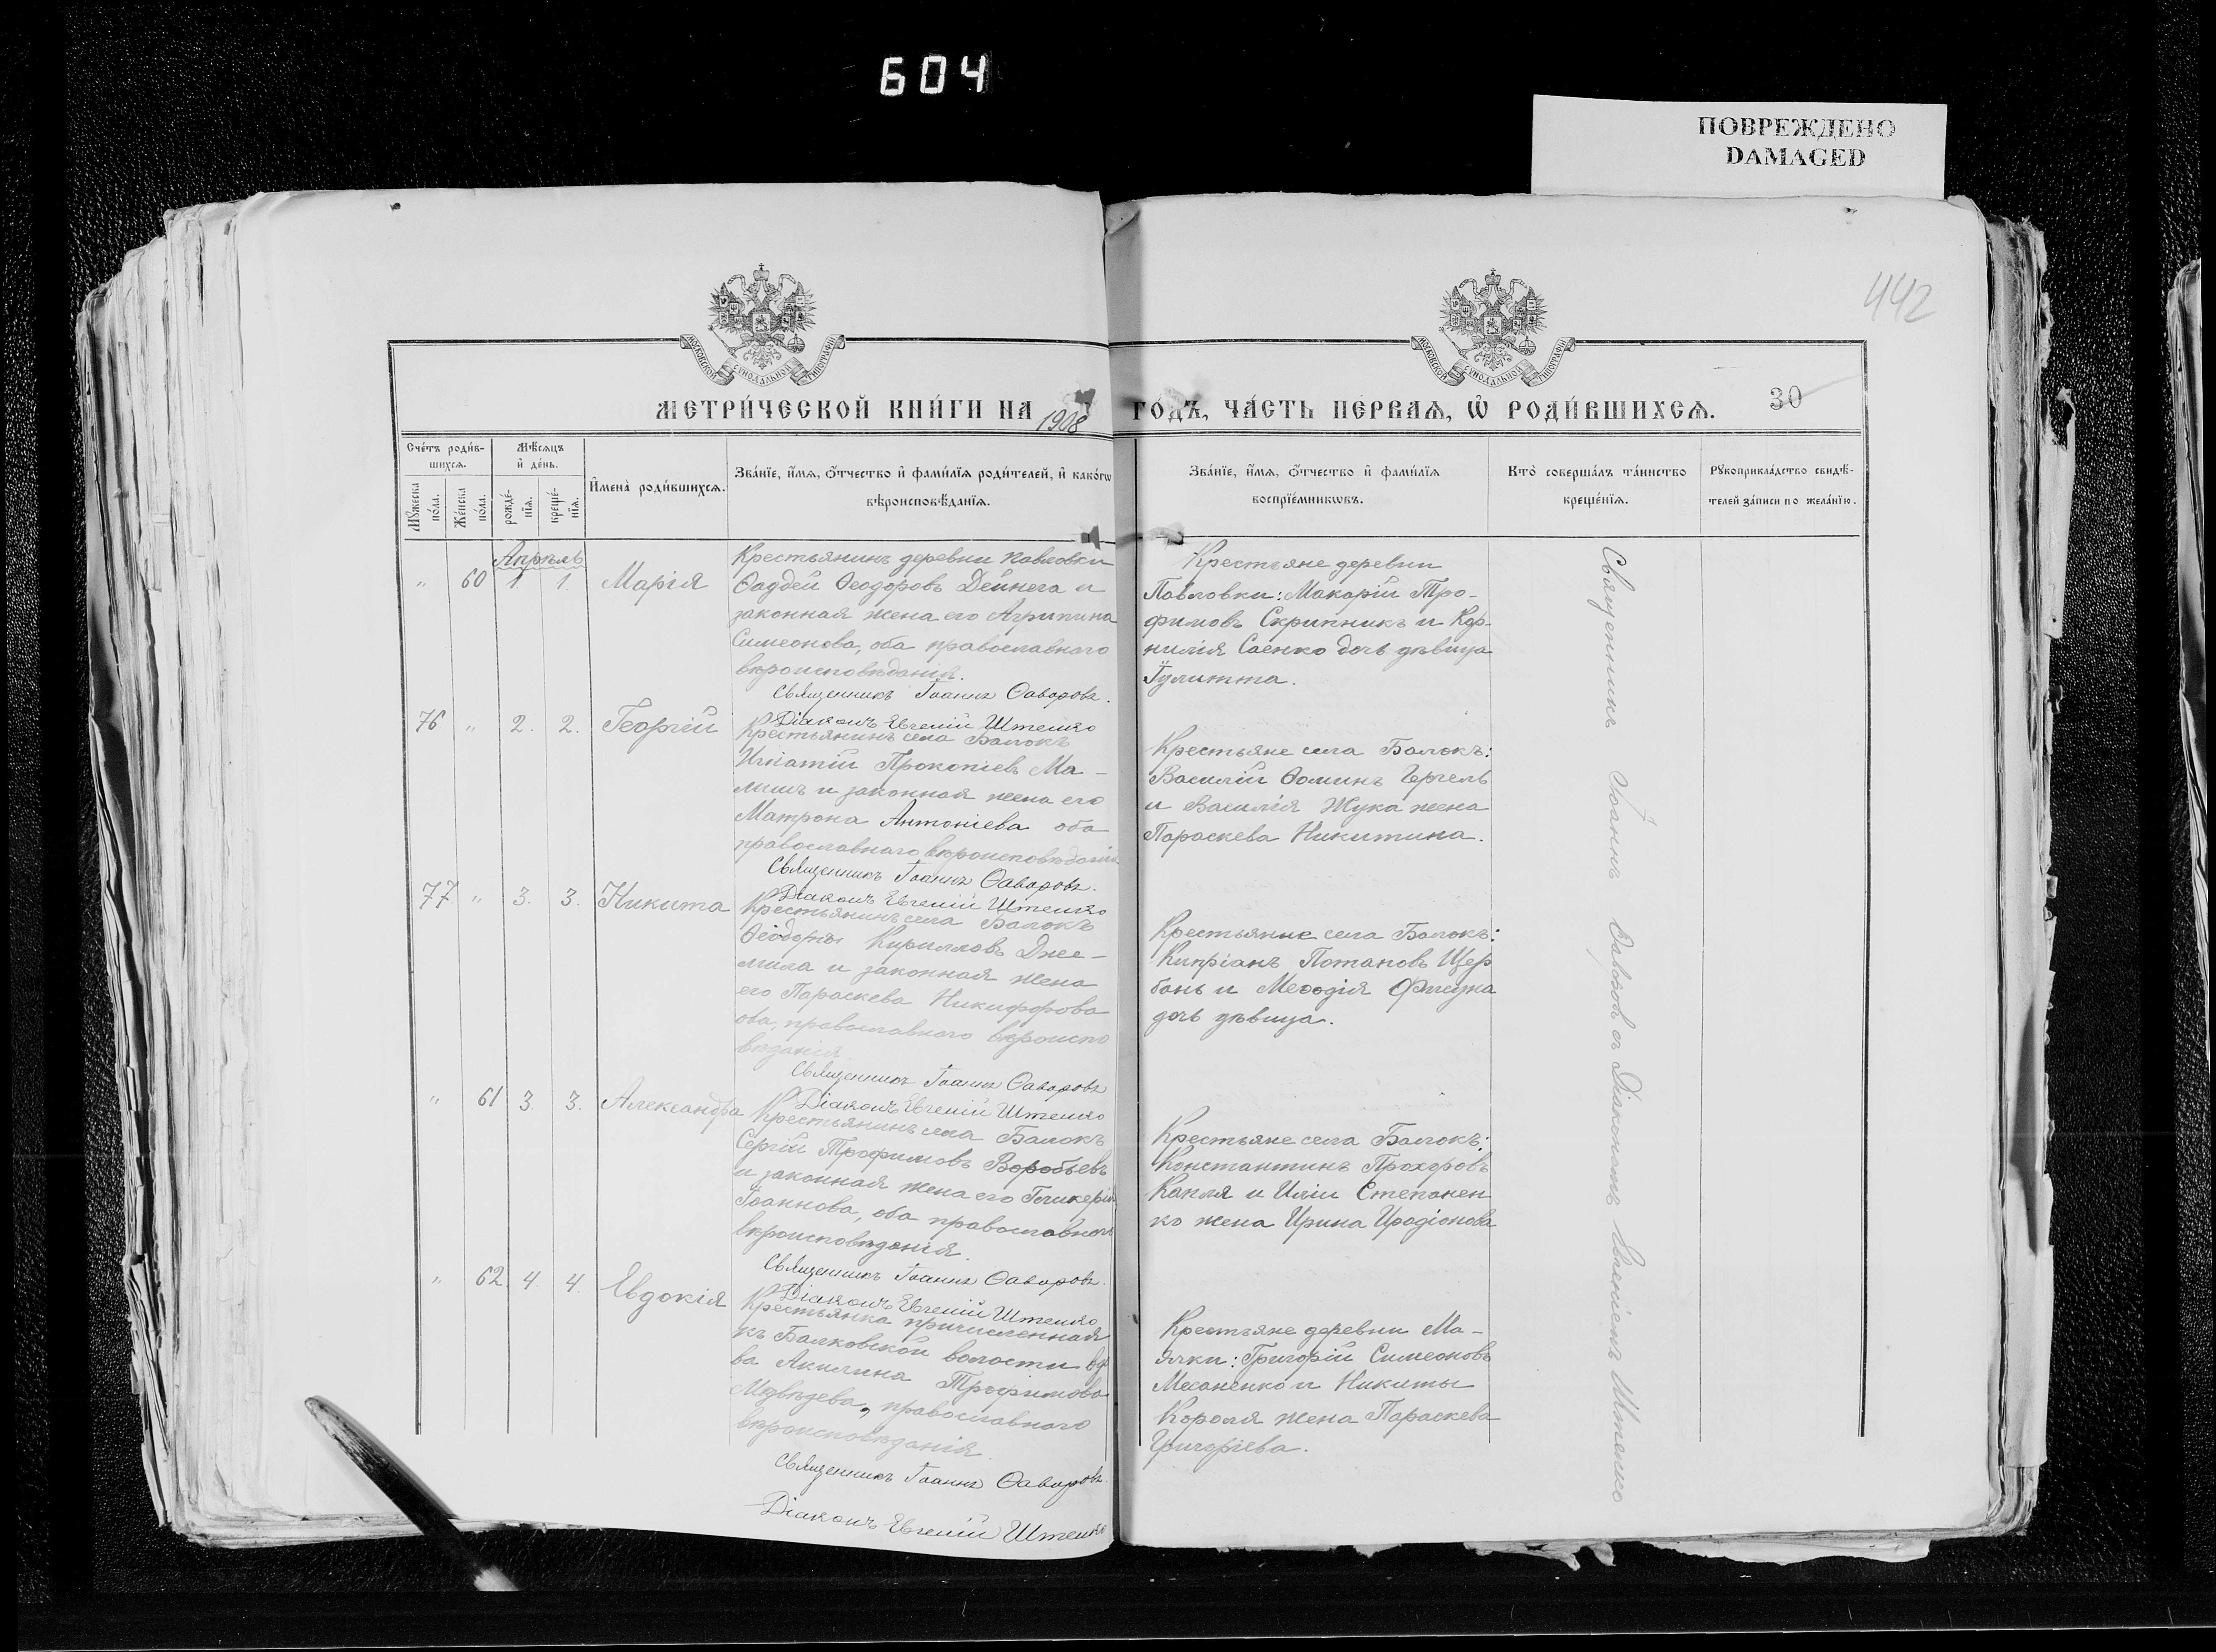 604
ПОВРЕЖДЕНО
DAMAGED
442
МОСКОВСКОЙ СѴНОДАЛЬНОЙ ТИПОГРАФІИ
МОСКОВСКОЙ СѴНОДАЛЬНОЙ ТИПОГРАФІИ
МЕТРИ́ЧЕСКОЙ КНИ́ГИ НА 1908 ГО́ДЪ, ЧА́СТЬ ПЕ́РВАѦ, Ѡ РОДИ́ВШИХСѦ.
30
Счетъ роди́в-
шихсѧ.
Мѣсѧцъ
и҆ де́нь.
Мꙋжеска по́ла.
Же́нска по́ла.
рожде́-
нїѧ.
креще́-
нїѧ.
И҆мена̀ роди́вшихсѧ.
Зва́нїе, и҆́мѧ, ѻ҆́тчество и҆ фами́лїѧ роди́телей, и҆ како́гѡ
вѣроисповѣ́данїѧ.
Зва́нїе, и҆́мѧ, ѻ҆́тчество и҆ фами́лїѧ
воспрїе́мникѡвъ.
Кто̀ соверша́лъ та́инство
креще́нїѧ.
Рꙋкоприкла́дство свидѣ́-
телей за́писи по жела́нїю.
Апрѣль
" 60 1. 1. Марія
Крестьянинъ деревни Павловки
Ѳаддей Ѳеодоровъ Дейнега и
законная жена его Агрипина
Симеонова, оба православнаго
вѣроисповѣданія.
Священникъ Іоаннъ Ѳаворовъ.
Діаконъ Евгеній Штепко
Крестьяне деревни
Павловки: Макарій Тро-
фимовъ Скрипникъ и Кор-
нилія Саенко дочь дѣвица
Іулитта.
76 " 2. 2. Георгій
Крестьянинъ села Балокъ
Игнатій Прокопіевъ Ма-
лышъ и законная жена его
Матрона Антоніева оба
православнаго вѣроисповѣданія
Священникъ Іоаннъ Ѳаворовъ.
Діаконъ Евгеній Штепко
Крестьяне села Балокъ:
Василій Ѳоминъ Гергель
и Василія Жука жена
Параскева Никитина.
77 " 3. 3. Никита
Крестьянинъ села Балокъ
Ѳеодоръ Кирилловъ Дже-
мила и законная жена
его Параскева Никифорова
оба, православнаго вѣроиспо
вѣданія
Священникъ Іоаннъ Ѳаворовъ
Діаконъ Евгеній Штепко
Крестьяне села Балокъ:
Кипріанъ Потаповъ Щер
бань и Меѳодія
дочь дѣвица.
" 61 3. 3. Александра
Крестьянинъ села Балокъ
Сергій Трофимовъ Воробьевъ
и законная жена его Гликерія
Іоаннова, оба православнаго
вѣроисповѣданія.
Священникъ Іоаннъ Ѳаворовъ.
Діаконъ Евгеній Штепко
Крестьяне села Балокъ:
Константинъ Прохоровъ
Капля и Иліи Степанен
ко жена Ирина Иродіонова
" 62 4. 4. Евдокія
Крестьянка причисленная
къ Балковской волости вдо
ва Акилина Трофимова
Медвѣдева, православнаго
вѣроисповѣданія.
Священникъ Іоаннъ Ѳаворовъ.
Діаконъ Евгеній Штепко
Крестьяне деревни Ма-
ячки: Григорій Симеоновъ
и Никиты
Короля жена Параскева
Григоріева.
Священникъ Іоаннъ Ѳаворовъ съ Діакономъ Евгеніемъ Штепко